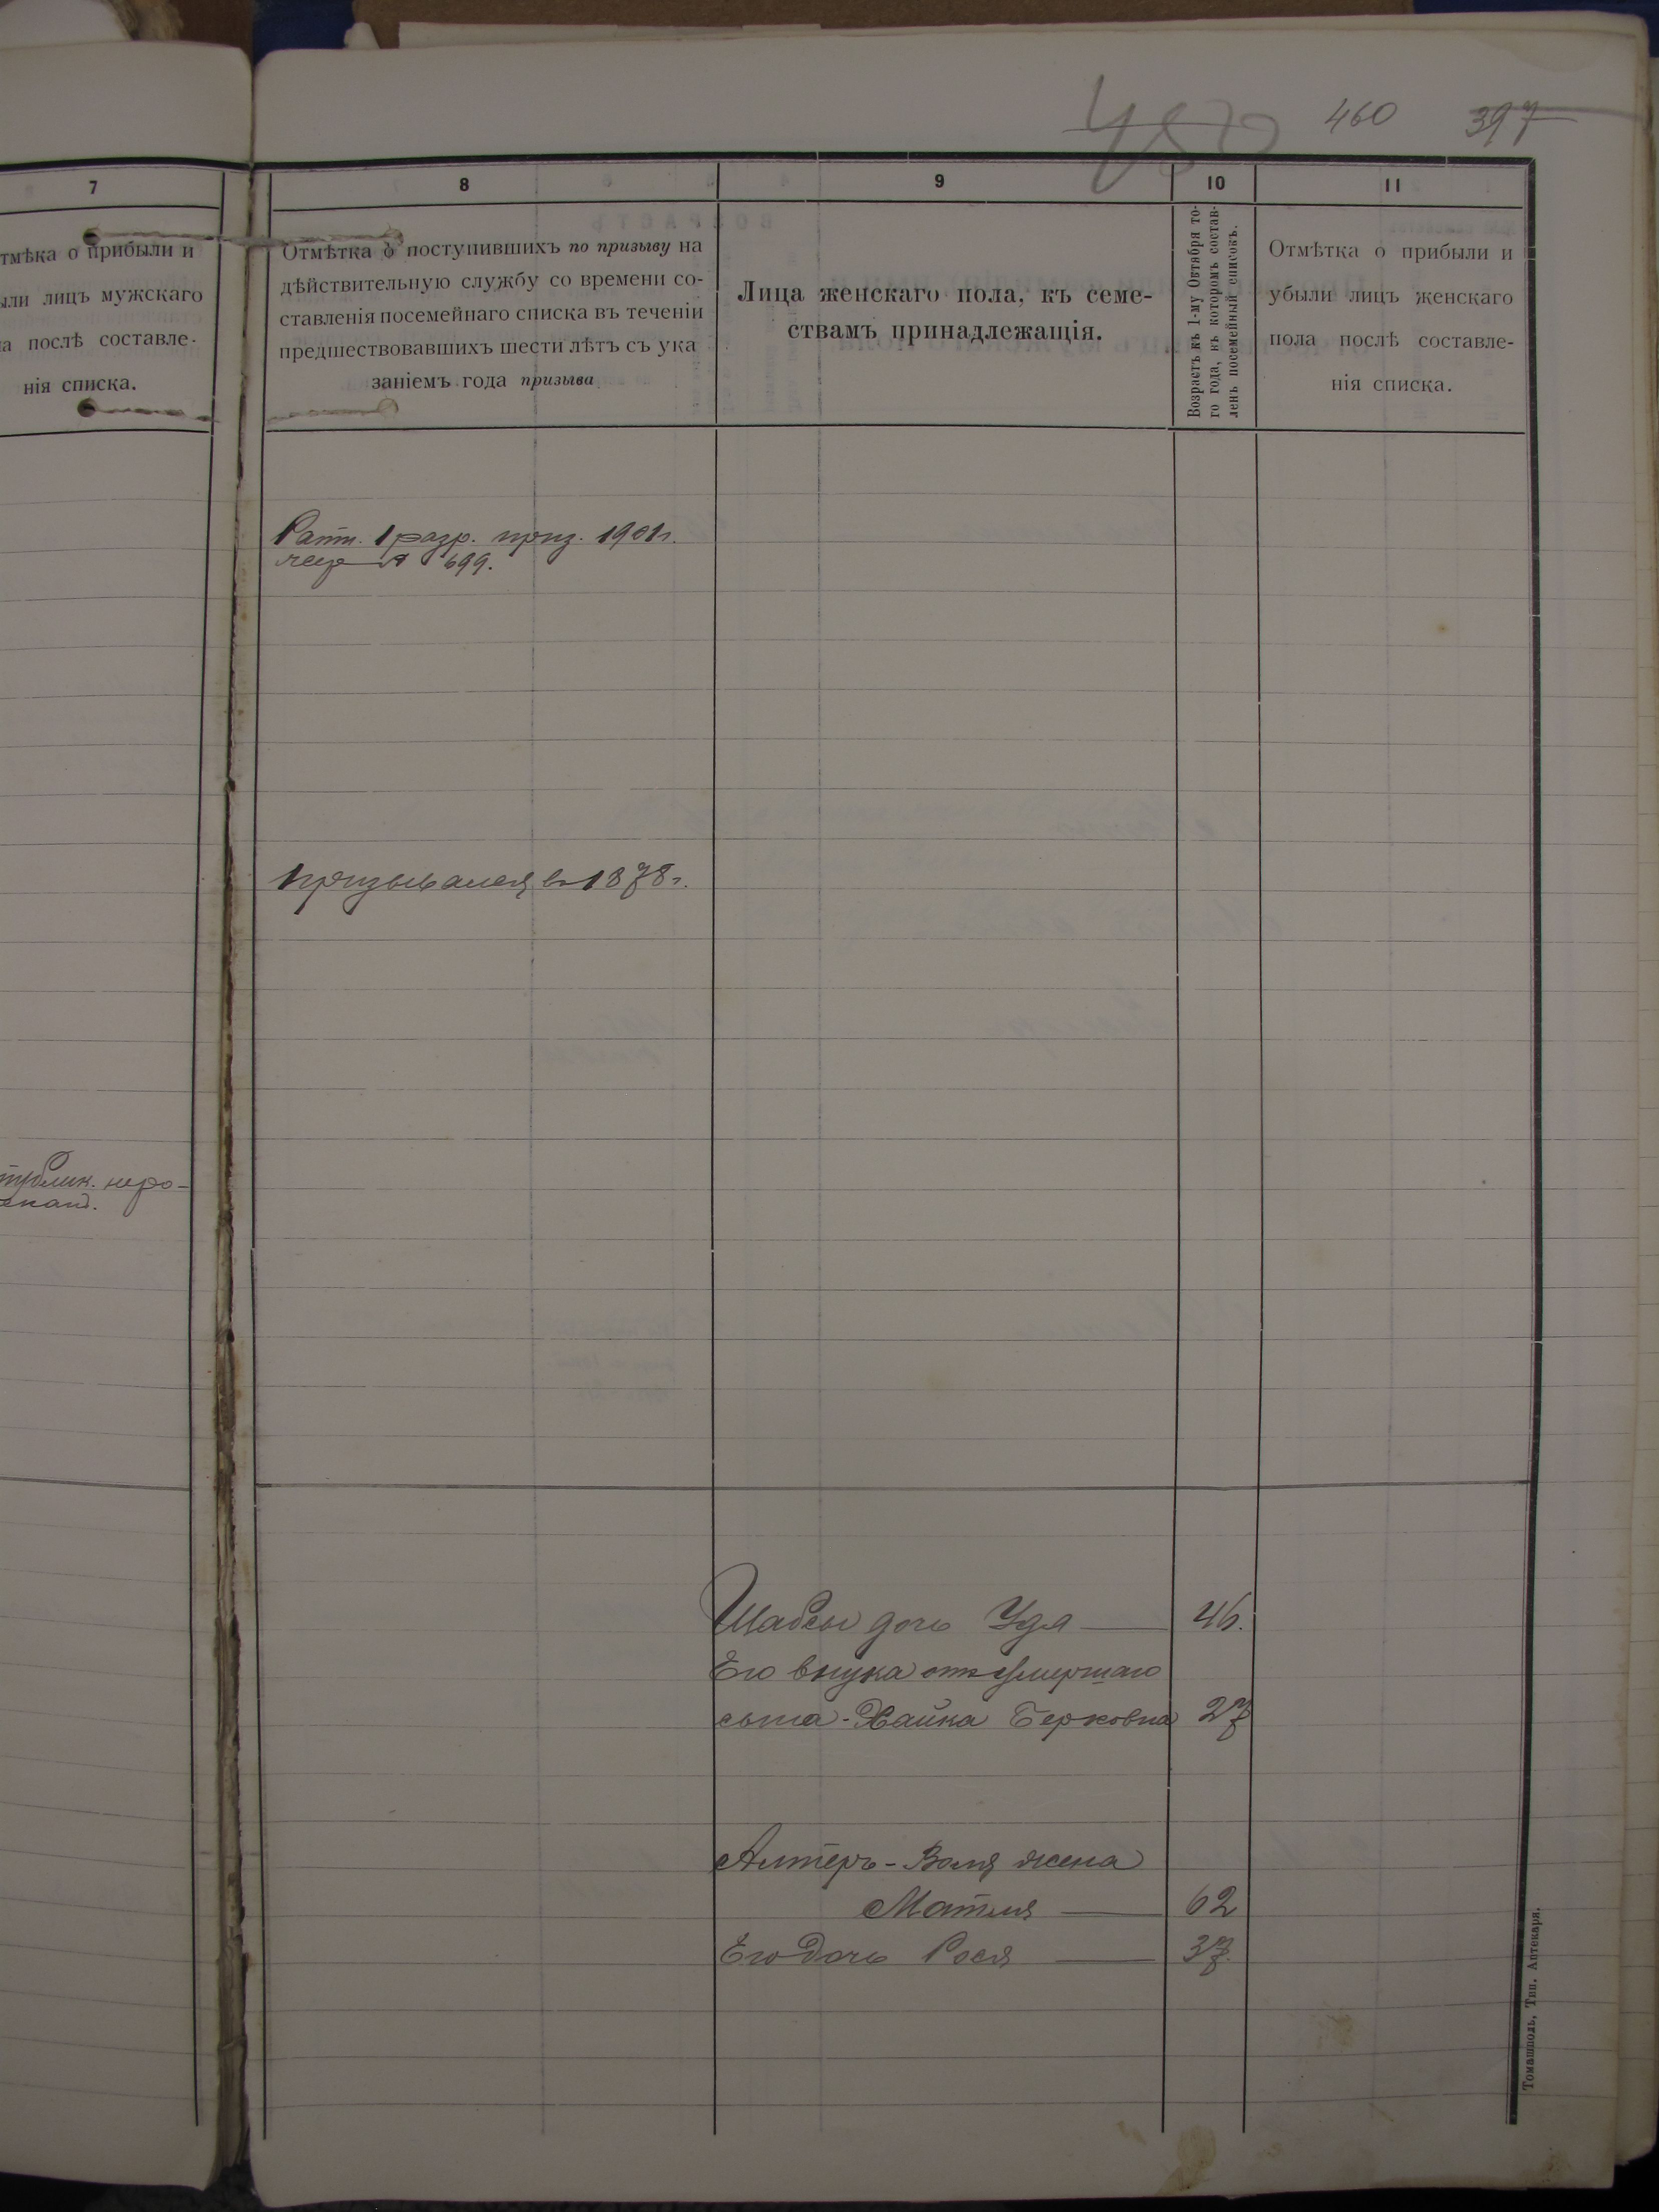 460 397
7
тмѣка о прибыли и
ыли лицъ мужскаго
а послѣ составле-
нія списка.
8
Отмѣтка о поступившихъ по призыву на
дѣйствительную службу со времени со-
ставленія посемейнаго списка въ теченіи
предшествовавшихъ шести лѣтъ съ ука
заніемъ года призыва
9
Лица женскаго пола, къ семе-
ствамъ принадлежащія.
10
Возрастъ къ 1-му Октября то-
го года, къ которомъ состав-
ленъ посемейный списокъ.
11
Отмѣтка о прибыли и
убыли лицъ женскаго
пола послѣ составле-
нія списка.
Ратн. 1 разр. приз. 1901 г.
699.
призывался въ 1878 г.
Шабсы дочь Удя 46.
Его внука отъ умершаго
сына - Хайка Берковна 27
Алтеръ-Воля жена
Матля 62
Его дочь Рося 37.
Томашполь, Тип. Аптекаря.